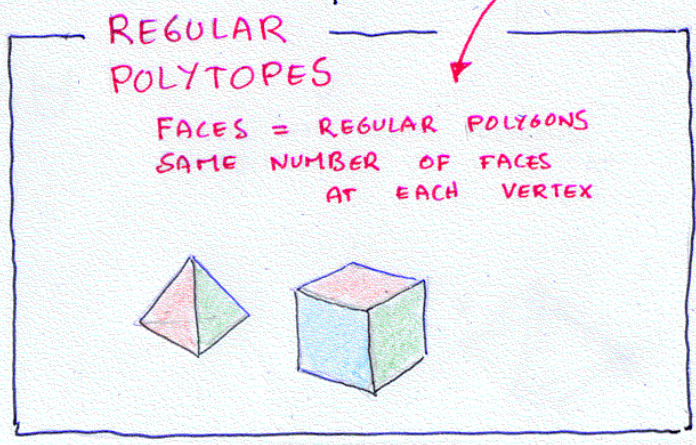 REGULAR
POLYTOPES
FACES = REGULAR POLYGONS
SAME NUMBER OF FACES
AT EACH VERTEX